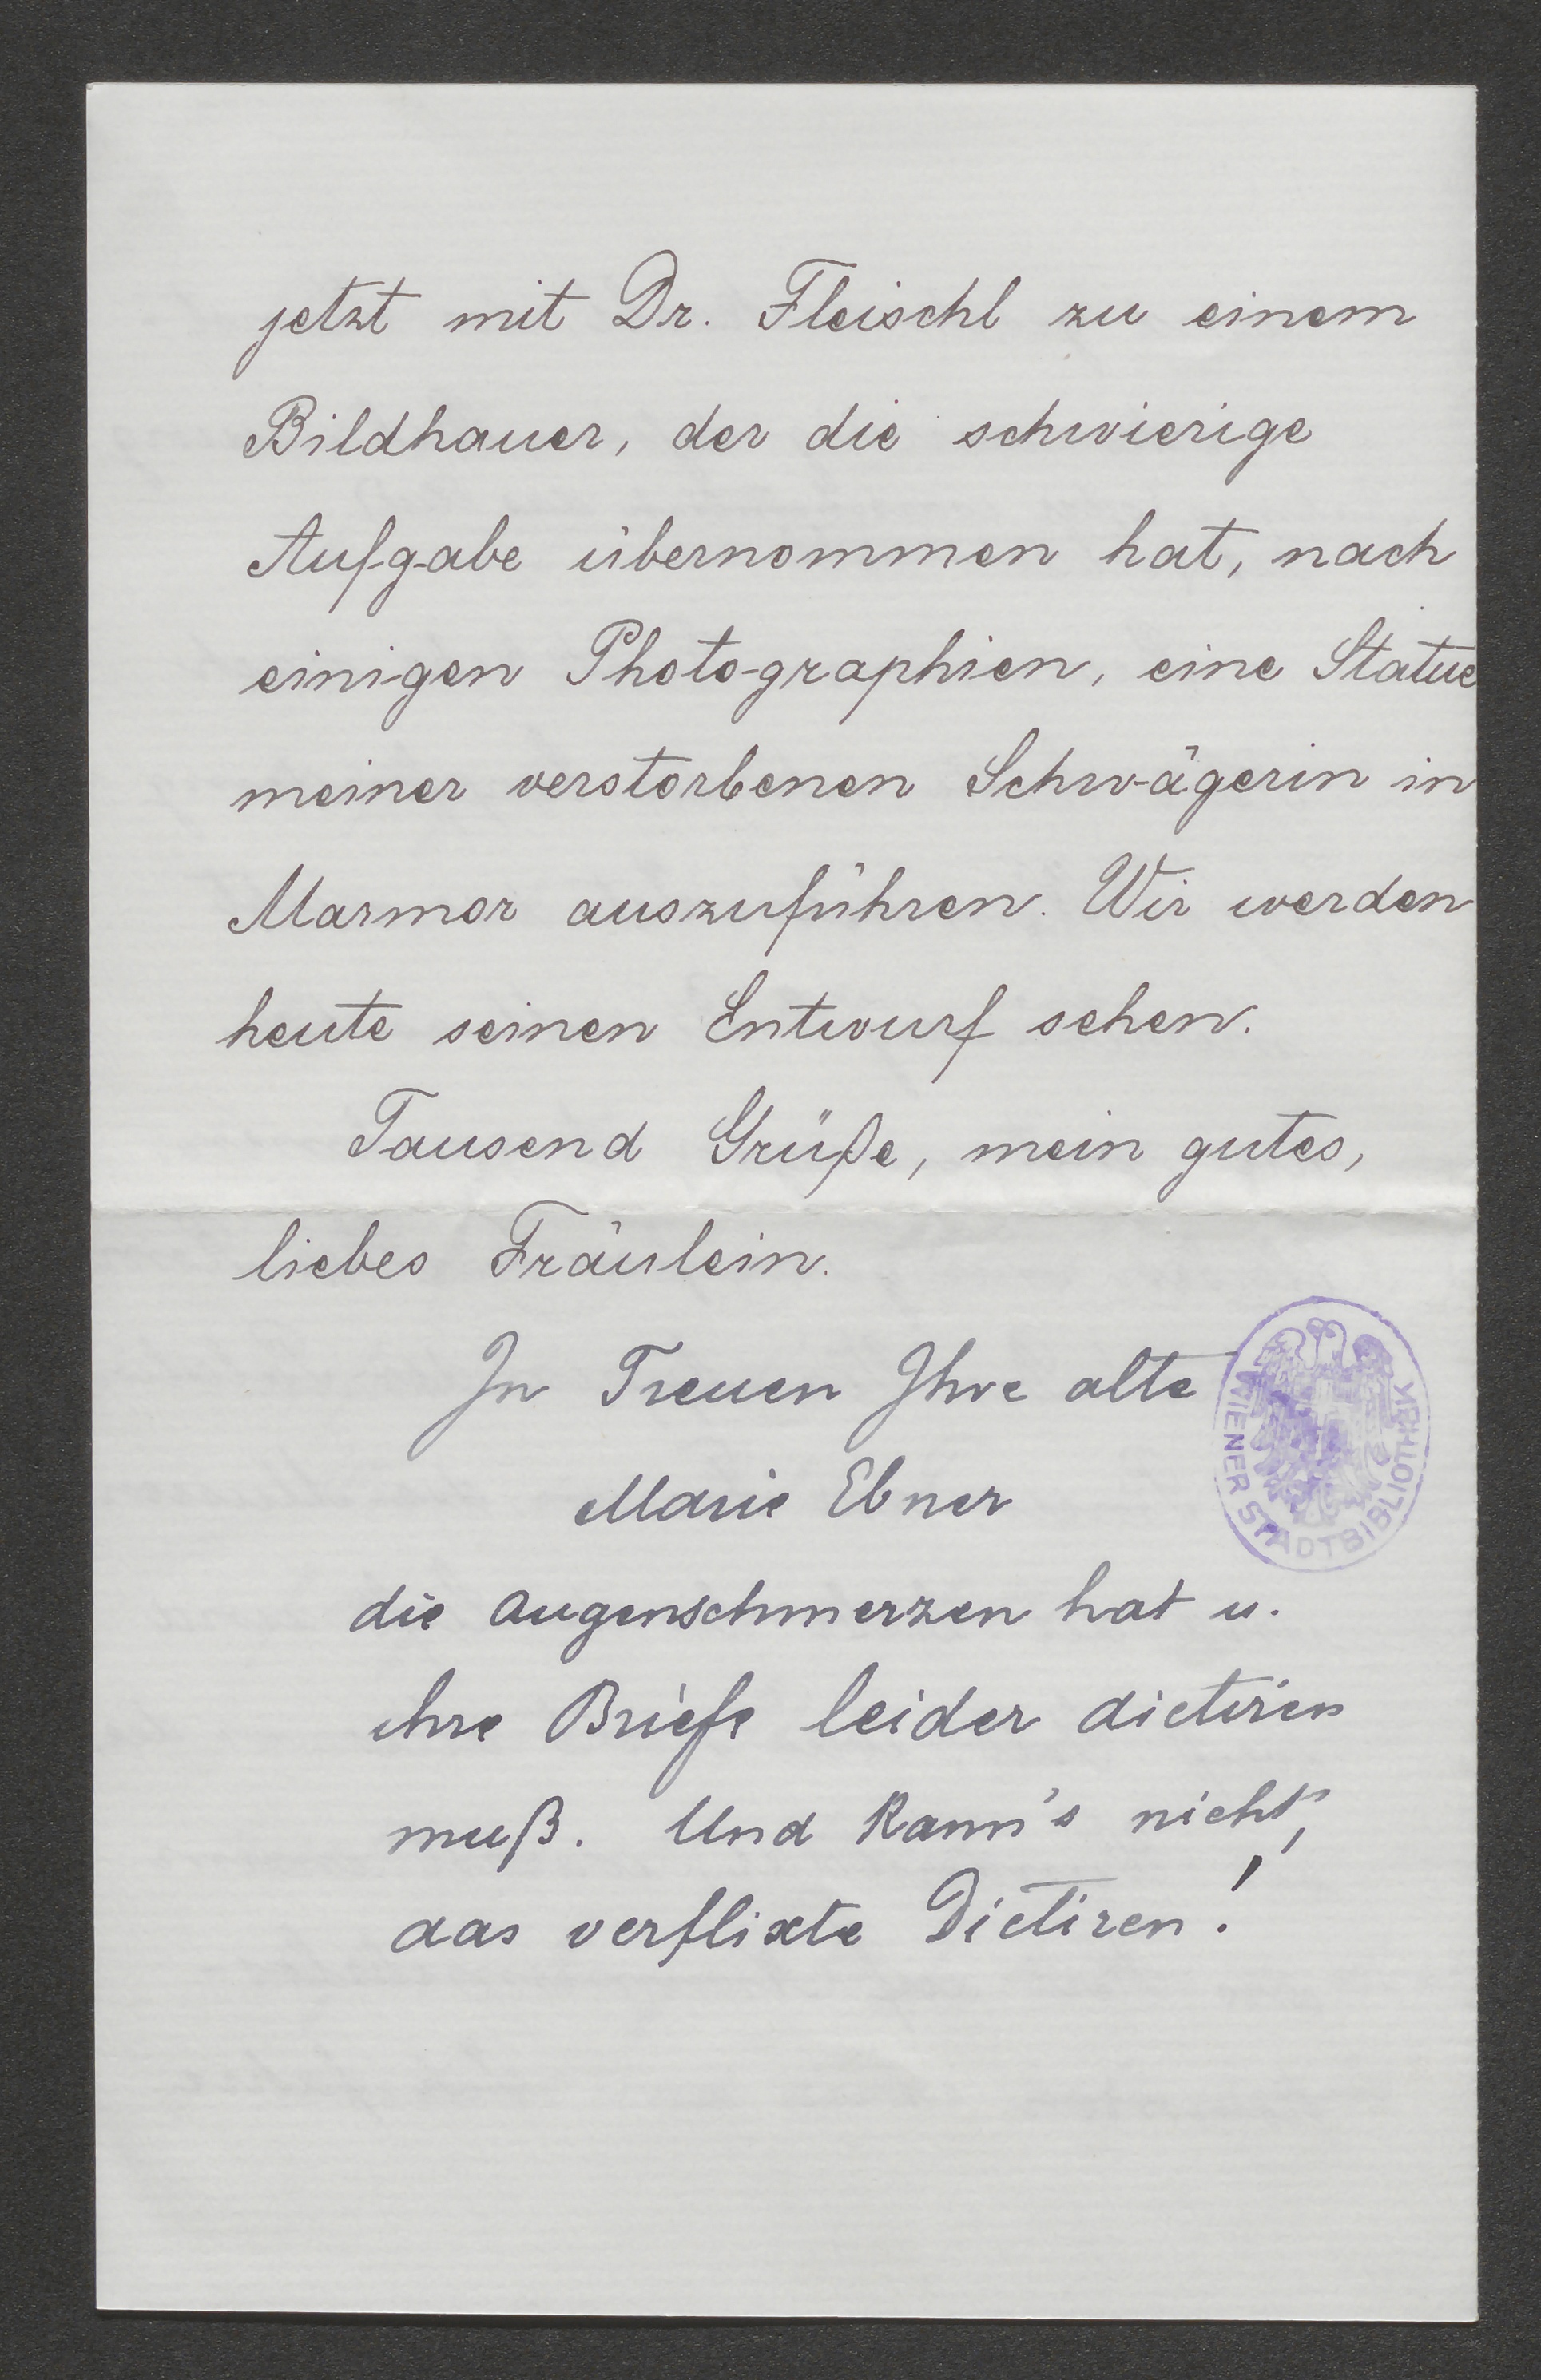 jetzt mit Dr. Fleischl zu einem
Bildhauer, der die schwierige
Aufgabe übernommen hat, nach
einigen Photographien, eine Statue
meiner verstorbenen Schwägerin in
Marmor auszuführen. Wir werden
heute seinen Entwurf sehen.
Tausend Grüße, mein gutes,
liebes Fräulein.
In Treuen Ihre alte
Marie Ebner
die Augenschmerzen hat u.
ihre Briefe leider dictiren
muß. Und kann's nicht,
das verflixte Dictiren!
WIENER STADTBIBLIOTHEK